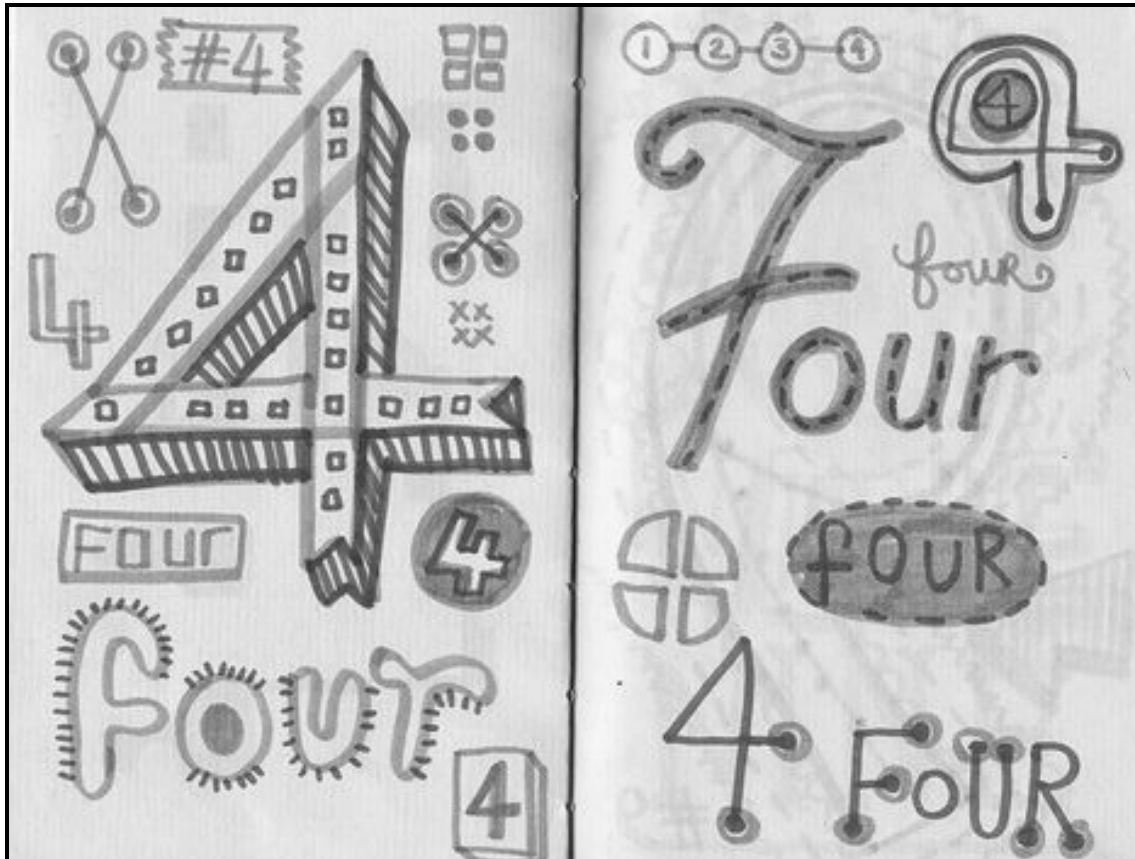 #4
4
4
FOUR
4
four
4
1 2 3 4
4
Four
fouR
fOUR
4 FoUR